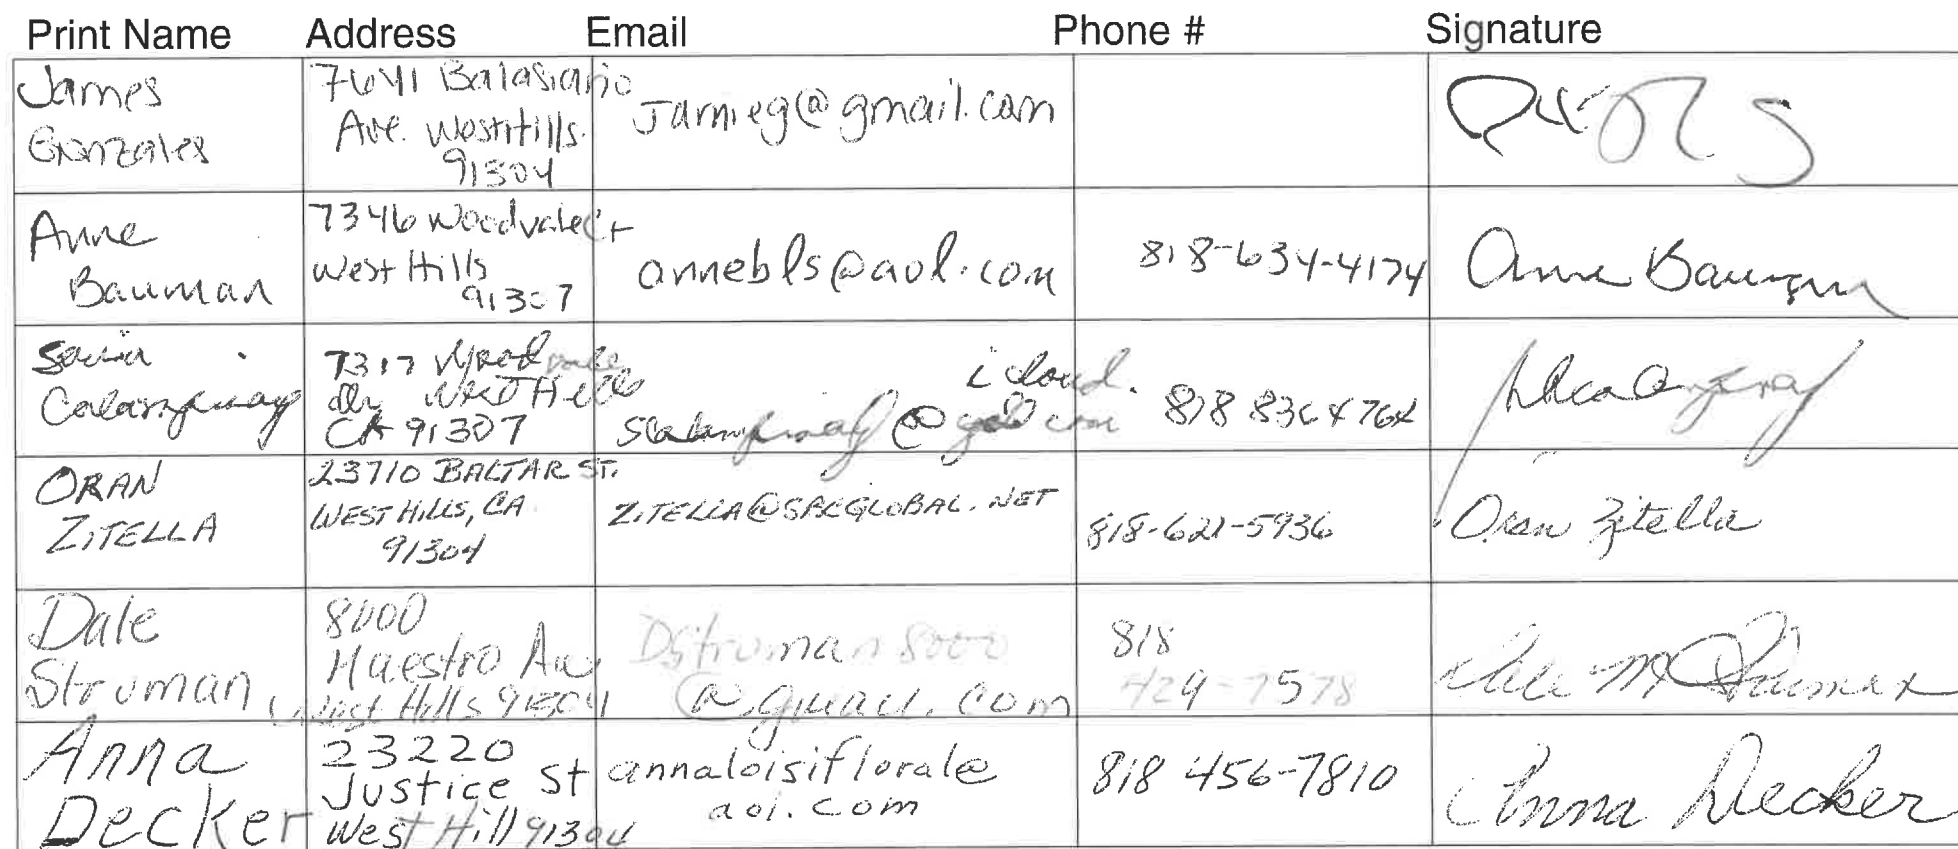 Print Name Address Email Phone # Signature
James
Gonzales
7641
Ave. West Hills.
91304
Jamieg@gmail.com
Anne
Bauman
7346 Woodvale Ct
West Hills
91307
annebls@aol.com
818-634-4174
Anne Bauman
7317 Woodvale
Dr West Hills
CA 91307
icloud.
com
818 836 4764
ORAN
ZITELLA
23710 BALTAR ST.
WEST HILLS, CA
91304
ZITELLA@SBCGLOBAL.NET
818-621-5936
Oran Zitella
Dale
Struman
8000
Maestro Av
West Hills 91304
Dstruman8000
@gmail.com
818
429-7578
Dale M Struman
Anna
Decker
23220
Justice St
West Hill 91304
annaloisiflorale
aol.com
818 456-7810
Anna Decker